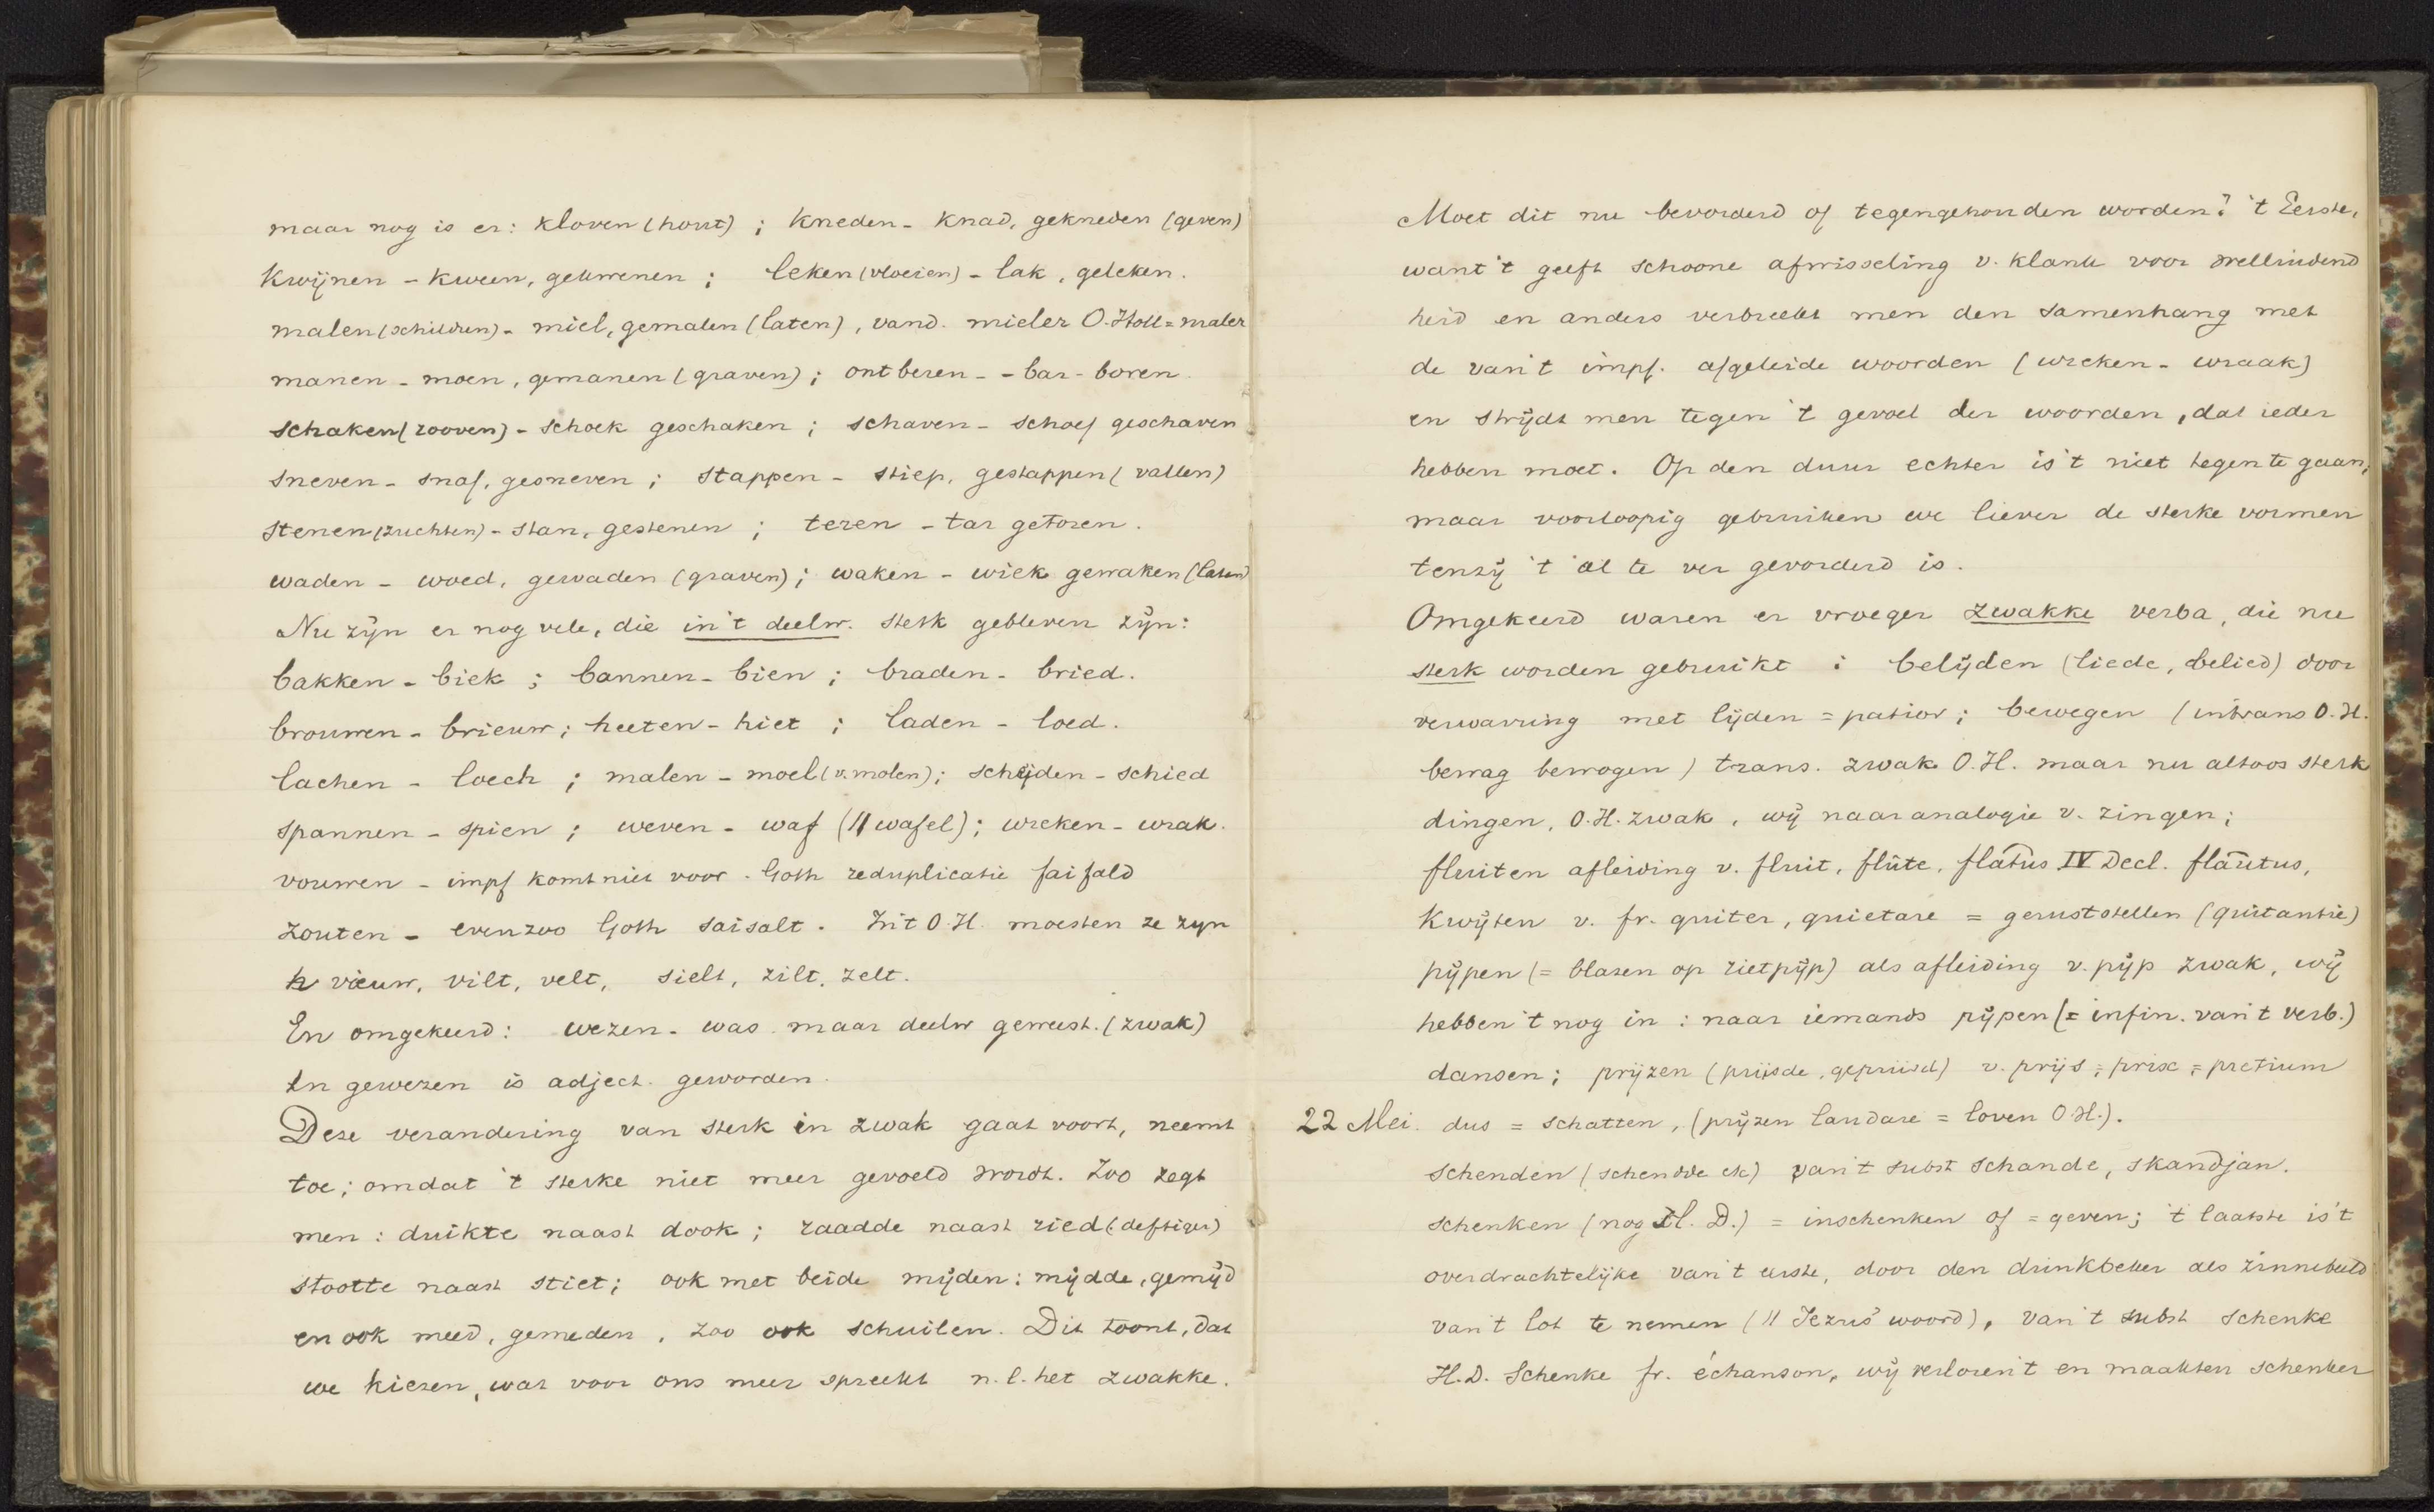 maar nog is er: kloven (hout) ; kneden - knad, gekneden (geven)
kwijnen - kween, gekwenen ; leken (vloeien) - lak, geleken.
malen (schilderen) - miel, gemalen (laten), vand. mieler O. Holl = maler
manen - moen, gemanen (graven) ; ontberen - - bar - boren.
schaken (rooven) - schoek geschaken ; schaven - schoef geschaven
sneven - snaf, gesneven ; stappen - stiep, gestappen (vallen)
stenen (zuchten) - stan, gestenen ; teren - tar getoren.
waden - woed, gewaden (graven) ; waken - wiek gewaken (laten)
Nu zijn er nog vele, die in 't deelw. sterk gebleven zijn:
bakken - biek ; bannen - bien ; braden - bried.
brouwen - brieuw ; heeten - hiet ; laden - loed.
lachen - loech ; malen - moel (v. molen) ; scheiden - schied
spannen - spien ; weven - waf (// wafel) ; wreken - wrak.
vouwen - impf komt niet voor. Goth reduplicatie faifald
zouten - evenzoo Goth saisalt. In 't O.H. moesten ze zijn
vieuw, vilt, velt, sielt, zilt, zelt.
En omgekeerd: wezen - was maar deelw geweest. (zwak)
en gewezen is adject. geworden.
Deze verandering van sterk in zwak gaat voort, neemt
toe ; omdat 't sterke niet meer gevoeld wordt. Zoo zegt
men : duikte naast dook ; raadde naast ried (deftiger)
stootte naast stiet ; ook met beide mijden : mijdde, gemijd
en ook meed, gemeden, zoo ook schuilen. Dit toont, dat
we kiezen, wat voor ons meer spreekt n.l. het zwakke.
Moet dit nu bevorderd of tegengehouden worden? 't Eerste,
want 't geeft schoone afwisseling v. klank voor welluidend
heid en anders verbreekt men den samenhang met
de van 't impf. afgeleide woorden (wreken - wraak)
en strijdt men tegen 't gevoel der woorden, dat ieder
hebben moet. Op den duur echter is 't niet tegen te gaan,
maar voorloopig gebruiken we liever de sterke vormen
tenzij 't al te ver gevorderd is.
Omgekeerd waren er vroeger zwakke verba, die nu
sterk worden gebruikt : belijden (liede, belied) door
verwarring met lijden = patior ; bewegen (intrans O.H.
bewag bewogen) trans. zwak O.H. maar nu altoos sterk
dingen, O.H. zwak, wij naar analogie v. zingen ;
fluiten afleiding v. fluit, flûte, flatus IV Decl. flautus,
kwijten v. fr. quiter, quietare = geruststellen (quitantie)
pijpen (= blazen op rietpijp) als afleiding v. pijp zwak, wij
hebben 't nog in : naar iemands pijpen (= infin. van 't verb.)
dansen ; prijzen (prijsde, geprijsd) v. prijs = prix = pretium
22 Mei. dus = schatten, (prijzen laudare = loven O.H.).
schenden (schendde etc) van 't subst schande, skandjan.
schenken (nog H.D.) = inschenken of = geven ; 't laatste is 't
overdrachtelijke van 't eerste, door den drinkbeker als zinnebeeld
van 't lot te nemen (// Jezus' woord), van 't subst schenke
H.D. Schenke fr. échanson, wij verloren 't en maakten schenker